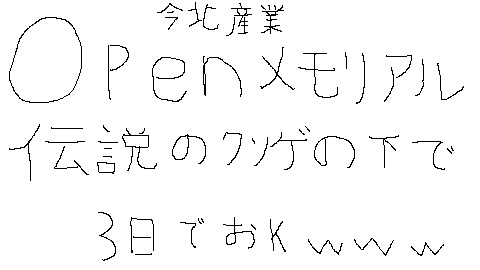 今北産業
Openメモリアル
伝説のクソゲの下で
3日でおK www